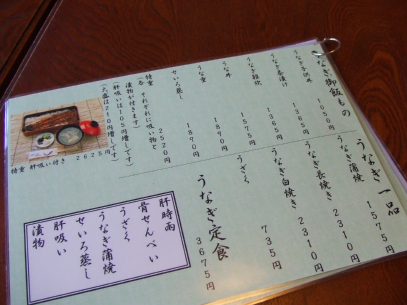 うなぎ御飯もの
うなぎ子供丼 1050円
うなぎ茶漬け 1365円
うなぎ雑炊 1365円
うな丼 1890円
うな重 1890円
せいろ蒸し
特重 2520円
(各 それぞれに吸い物と
漬物が付きます)
(肝吸いは105円増しです)
(大盛は210円増しです)
特重 肝吸い付き 2625円
うなぎ一品
うなぎ蒲焼 1575円
うなぎ長焼 2310円
うなぎ白焼き 2310円
うざく 735円
うなぎ定食 3675円
肝時雨
骨せんべい
うざく
うなぎ蒲焼
せいろ蒸し
肝吸い
漬物